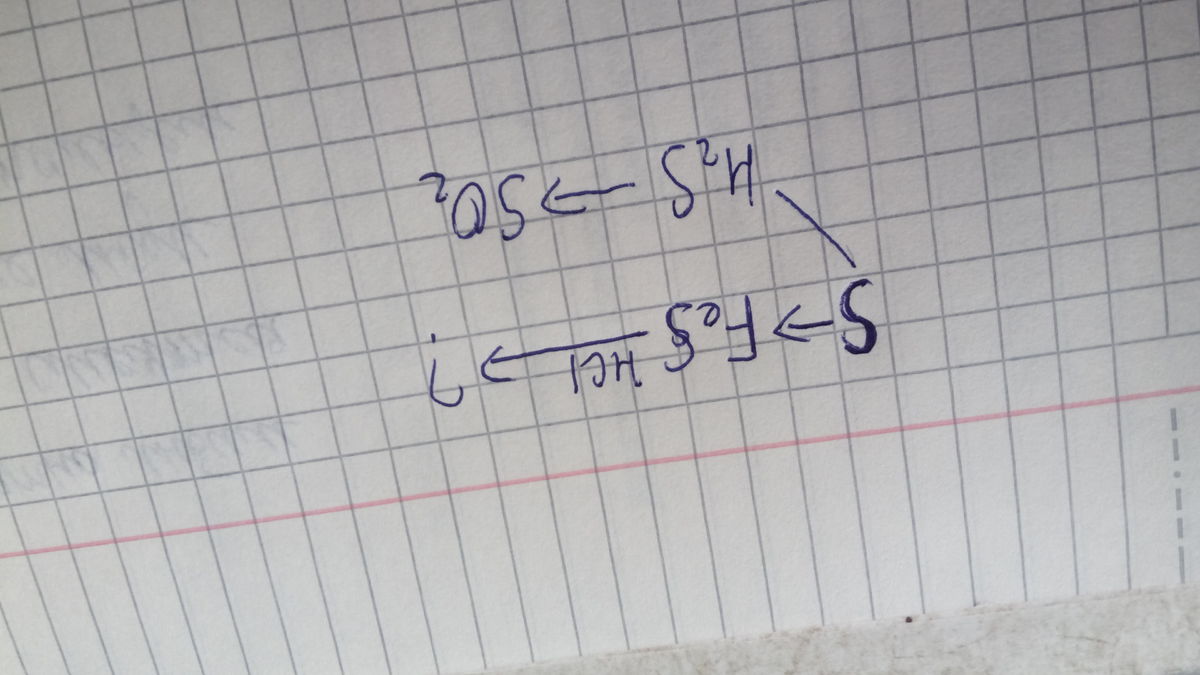 S → FeS HCl → ?
H₂S → SO₂